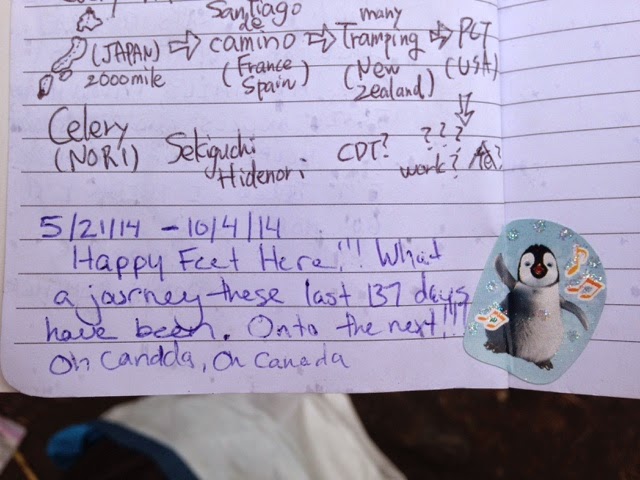 Santiago
de
many
(JAPAN) ⇒ camino ⇒ Tramping ⇒ PCT
2000mile (France Spain) (New Zealand) (USA)
Celery
(NORI) Sekiguchi Hidenori CDT? ? ? ?
work?
5/21/14 - 10/4/14
Happy Feet Here!!! What
a journey these last 137 days
have been. Onto the next!!!
Oh Canada, Oh Canada